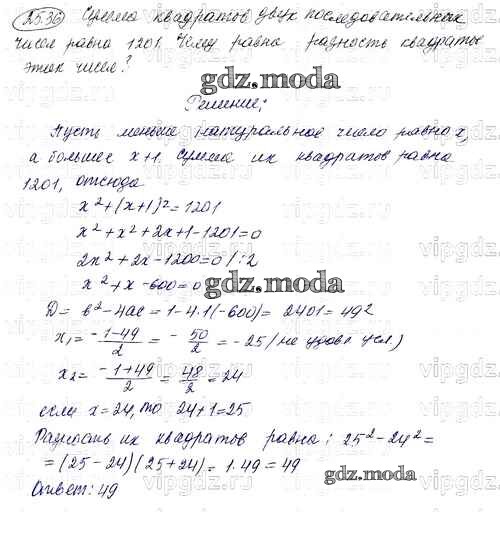 25.36 Сумма квадратов двух последовательных
чисел равна 1201. Чему равна разность квадратов
этих чисел?
gdz.moda
Решение:
Пусть меньшее натуральное число равно x,
а большее x+1. Сумма их квадратов равна
1201, отсюда
x²+(x+1)²=1201
x²+x²+2x+1-1201=0
2x²+2x-1200=0/:2
x²+x-600=0
gdz.moda
D= b²-4ac=1-4·1(-600)= 2401=49²
x₁= -1-49/2 = -50/2 = -25 (не удовл. усл.)
x₂= -1+49/2 = 48/2 = 24
если x=24, то 24+1=25
Разность их квадратов равна: 25²-24²=
=(25-24)(25+24)=1·49=49
gdz.moda
Ответ: 49